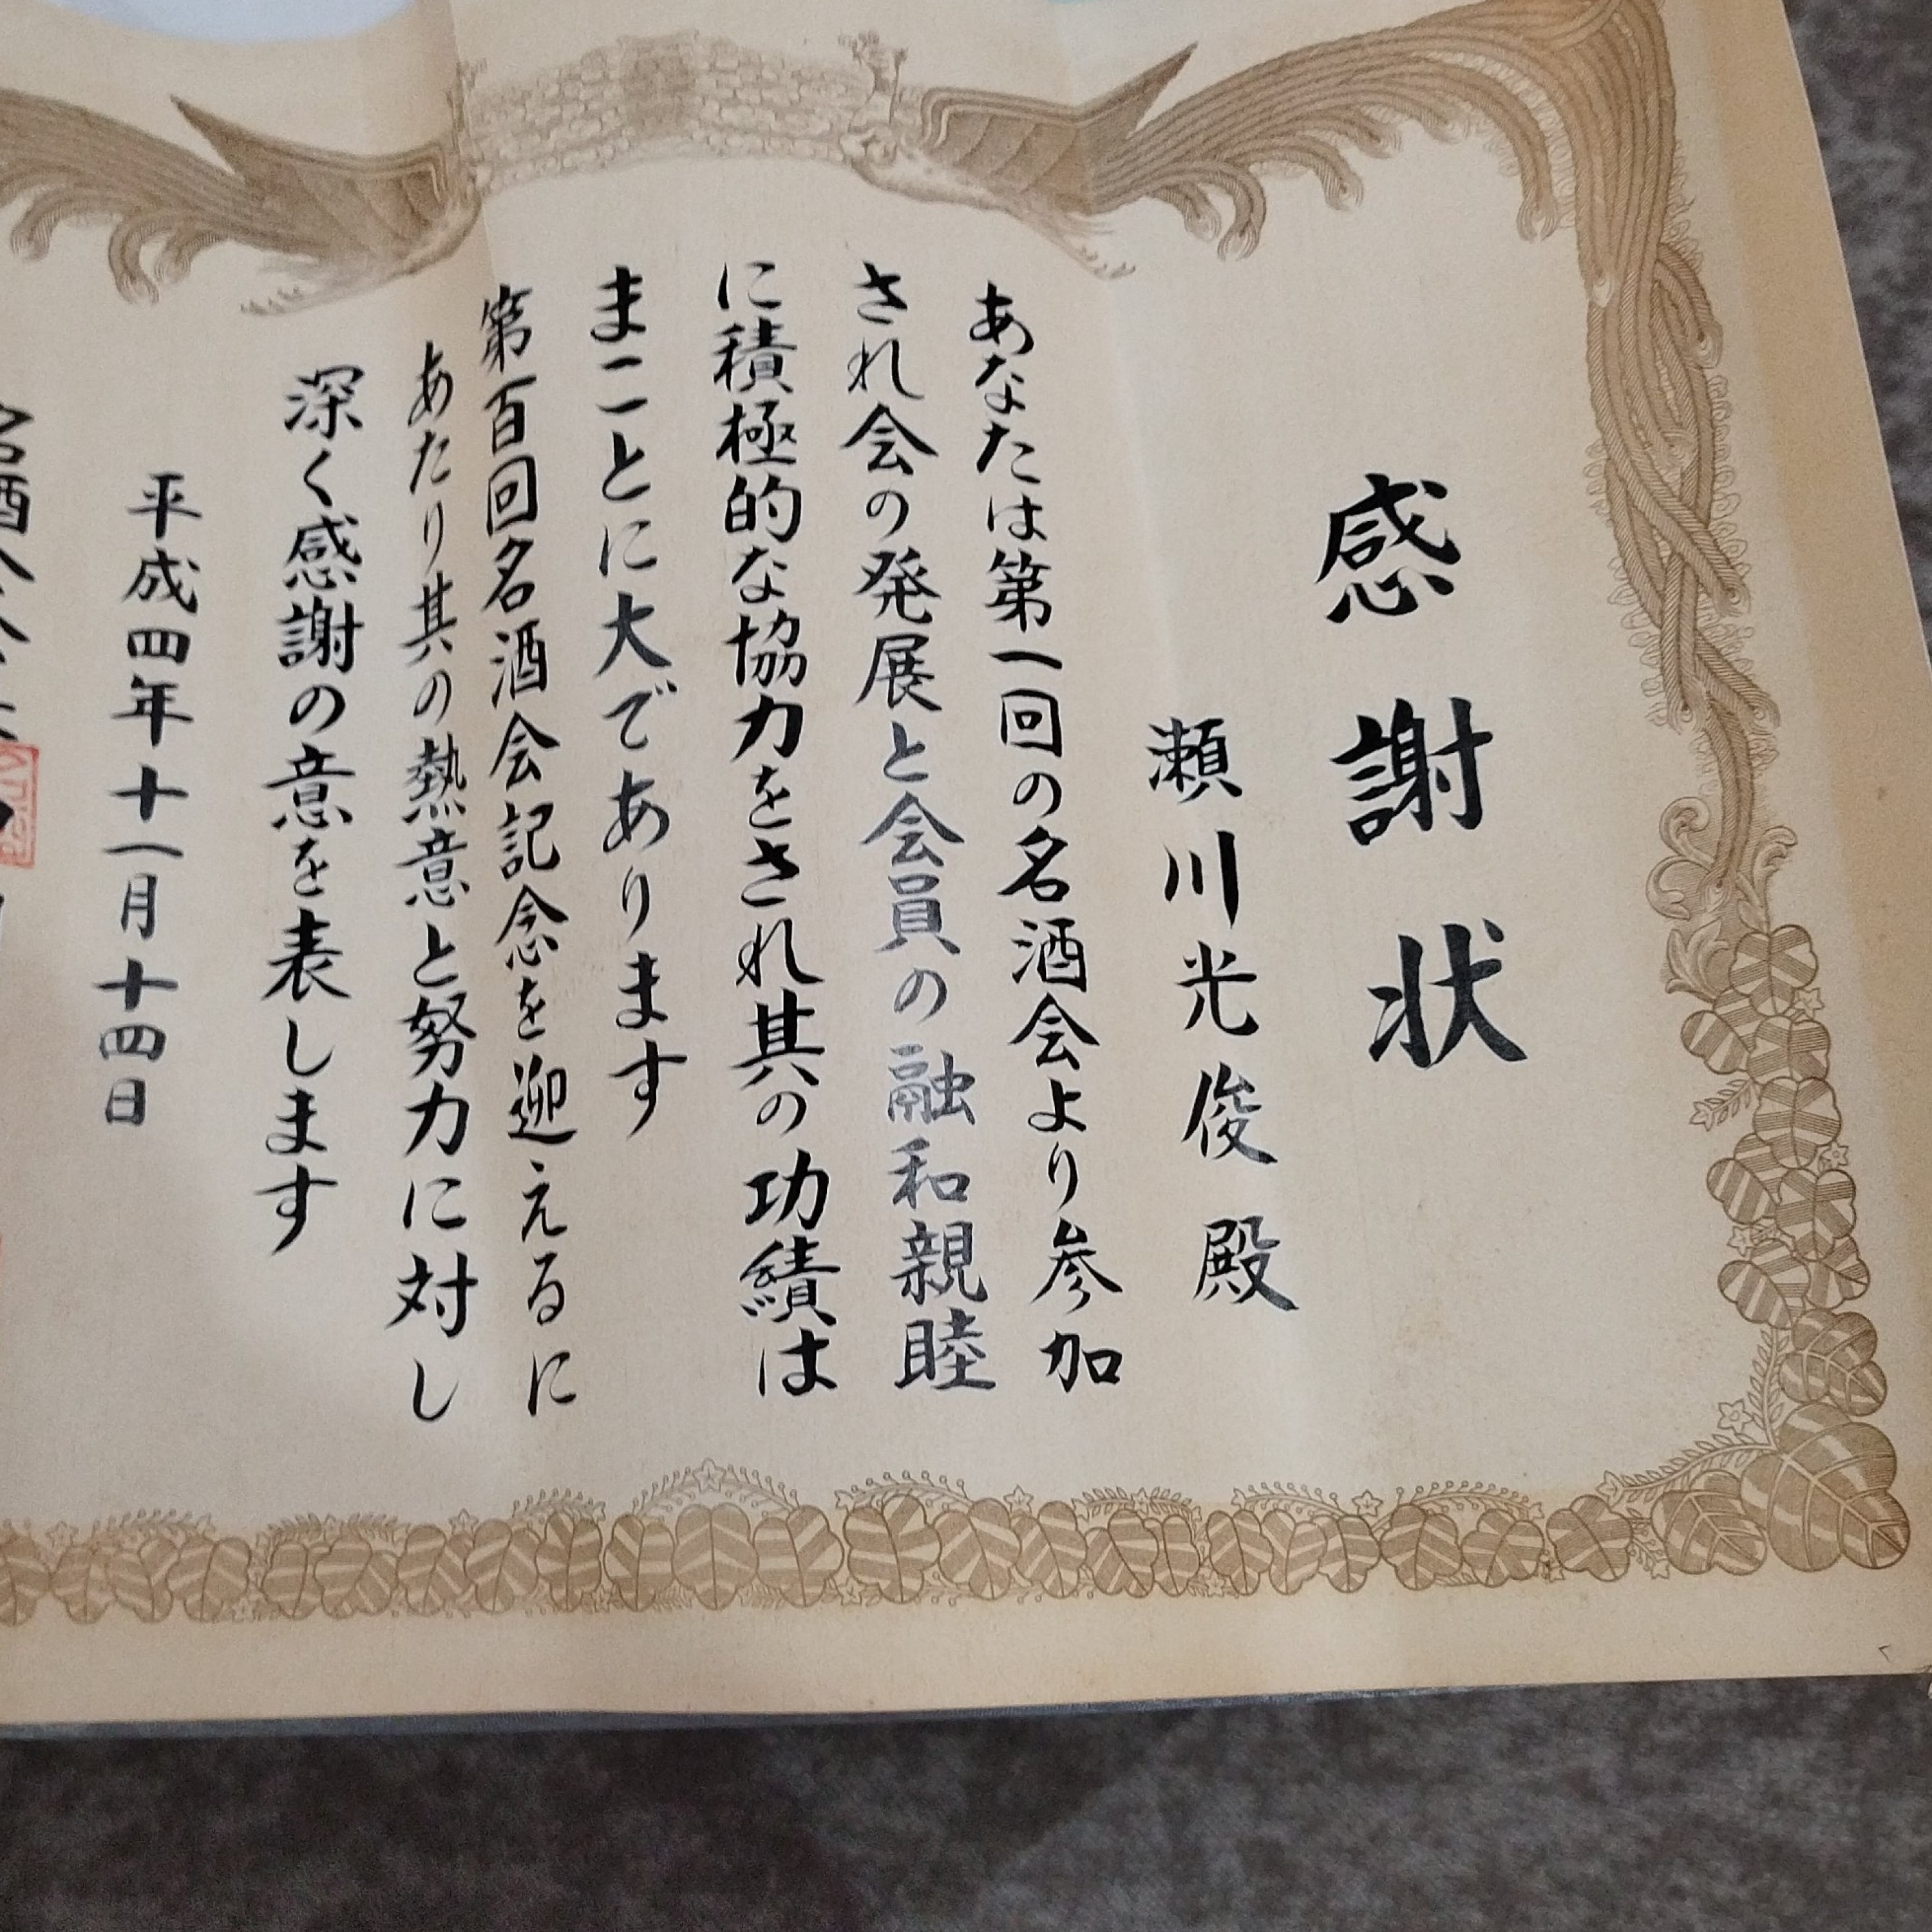 感謝状
瀬川光俊殿
あなたは第一回の名酒会より参加
され会の発展と会員の融和親睦
に積極的な協力をされ其の功績は
まことに大であります
第百回名酒会記念を迎えるに
あたり其の熱意と努力に対し
深く感謝の意を表します
平成四年十一月十四日
名酒会